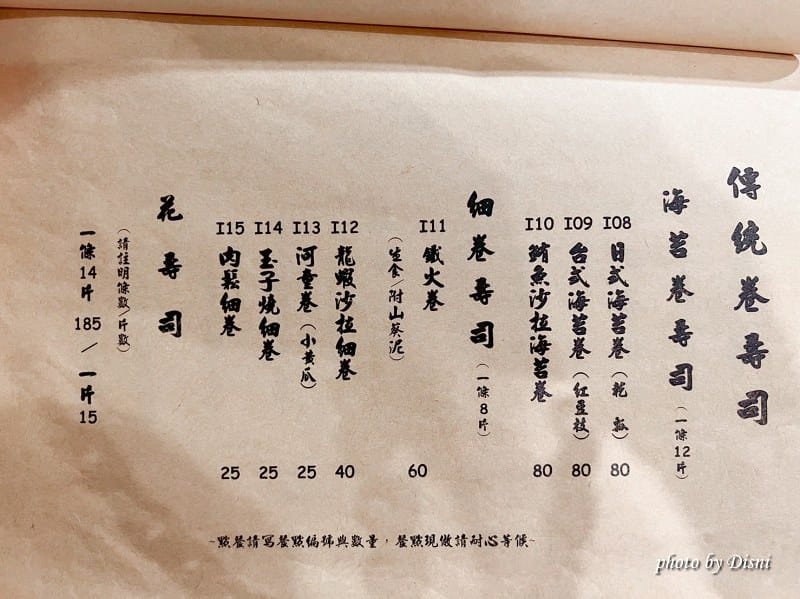 傳統卷壽司
海苔卷壽司(一條12片)
I08 日式海苔卷(乾瓢) 80
I09 台式海苔卷(紅豆枝) 80
I10 鮪魚沙拉海苔卷 80
細卷壽司(一條8片)
I11 鐵火卷 60
(生食/附山葵泥)
I12 龍蝦沙拉細卷 40
I13 河童卷(小黃瓜) 25
I14 玉子燒細卷 25
I15 肉鬆細卷 25
花壽司
(請註明條數/片數)
一條14片 185/一片15
~點餐請寫餐點編號與數量,餐點現做請耐心等候~
photo by Disni